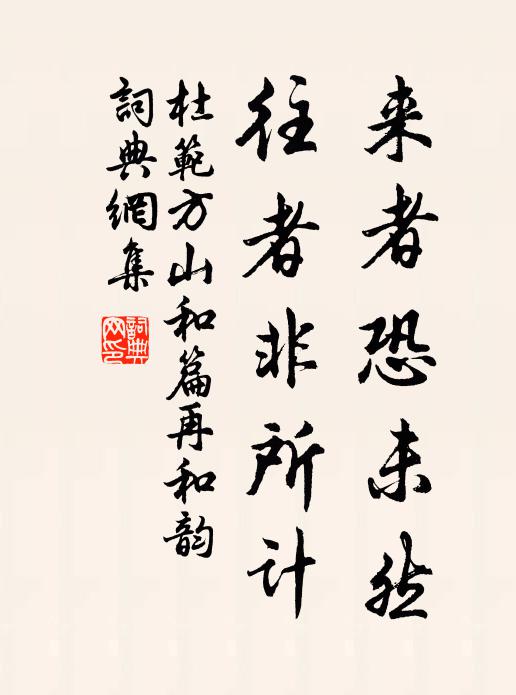 来者恐未然
往者非所计
杜範方山和篇再和韵
詞典網集
詞典網印